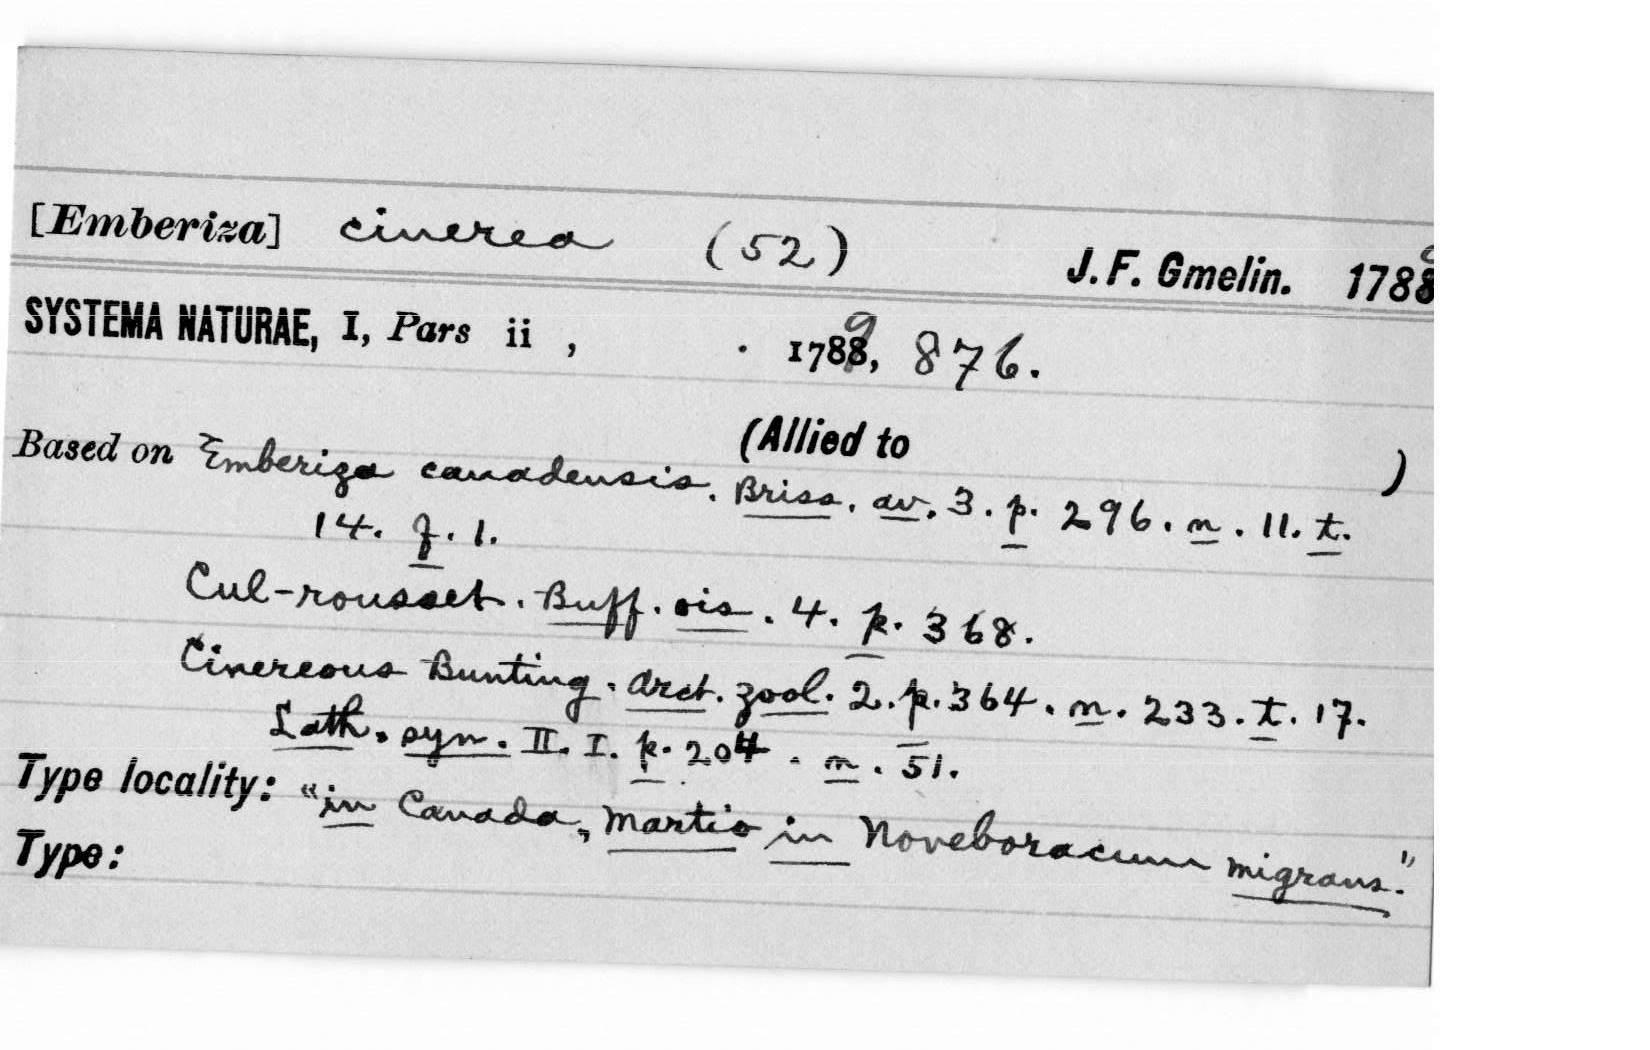 [Emberiza] cinerea (52) J. F. Gmelin. 1789
SYSTEMA NATURAE, I, Pars ii , . 1789, 876.
(Allied to )
Based on Emberiza canadensis. Briss. av. 3. p. 296. n. 11. t.
14. f. 1.
Cul-rousset. Buff. ois. 4. p. 368.
Cinereous Bunting. Arct. zool. 2. p. 364. n. 233. t. 17.
Lath. syn. II. I. p. 204. n. 51.
Type locality: "in Canada, Martio in Noveboracum migrans."
Type: